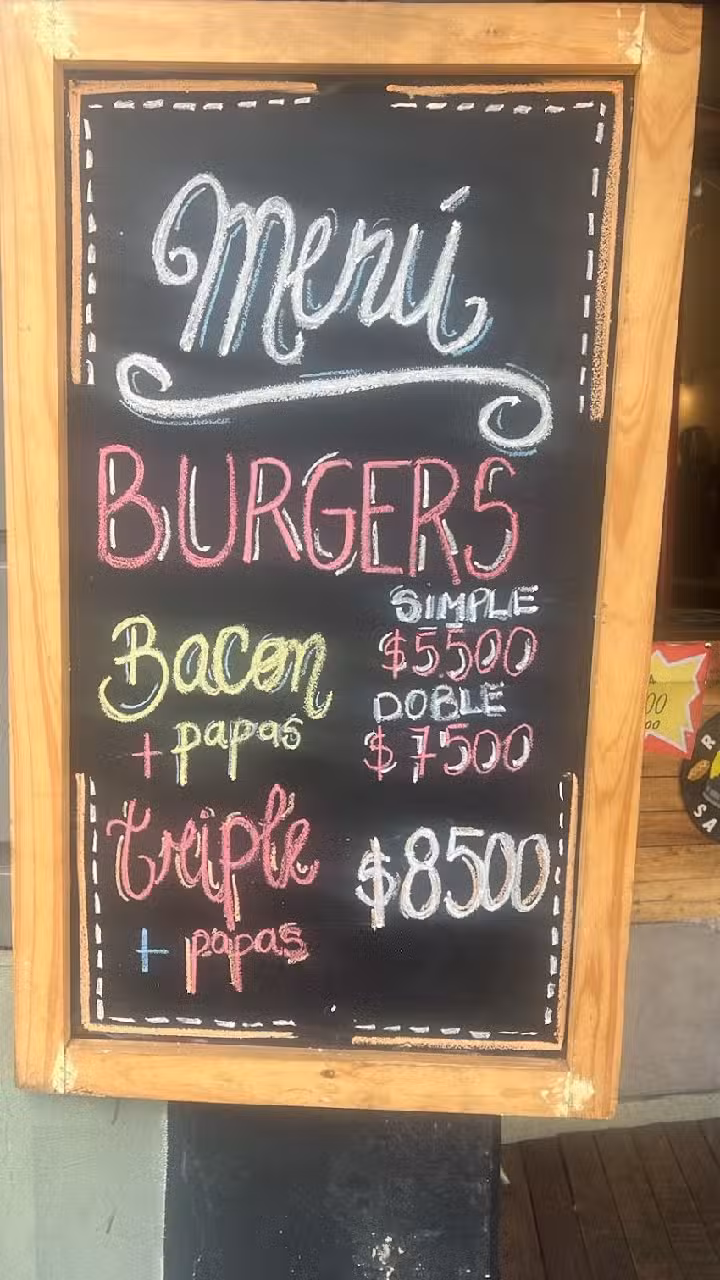 Menú
BURGERS
SIMPLE
Bacon $5500
DOBLE
+ papas $7500
triple $8500
+ papas